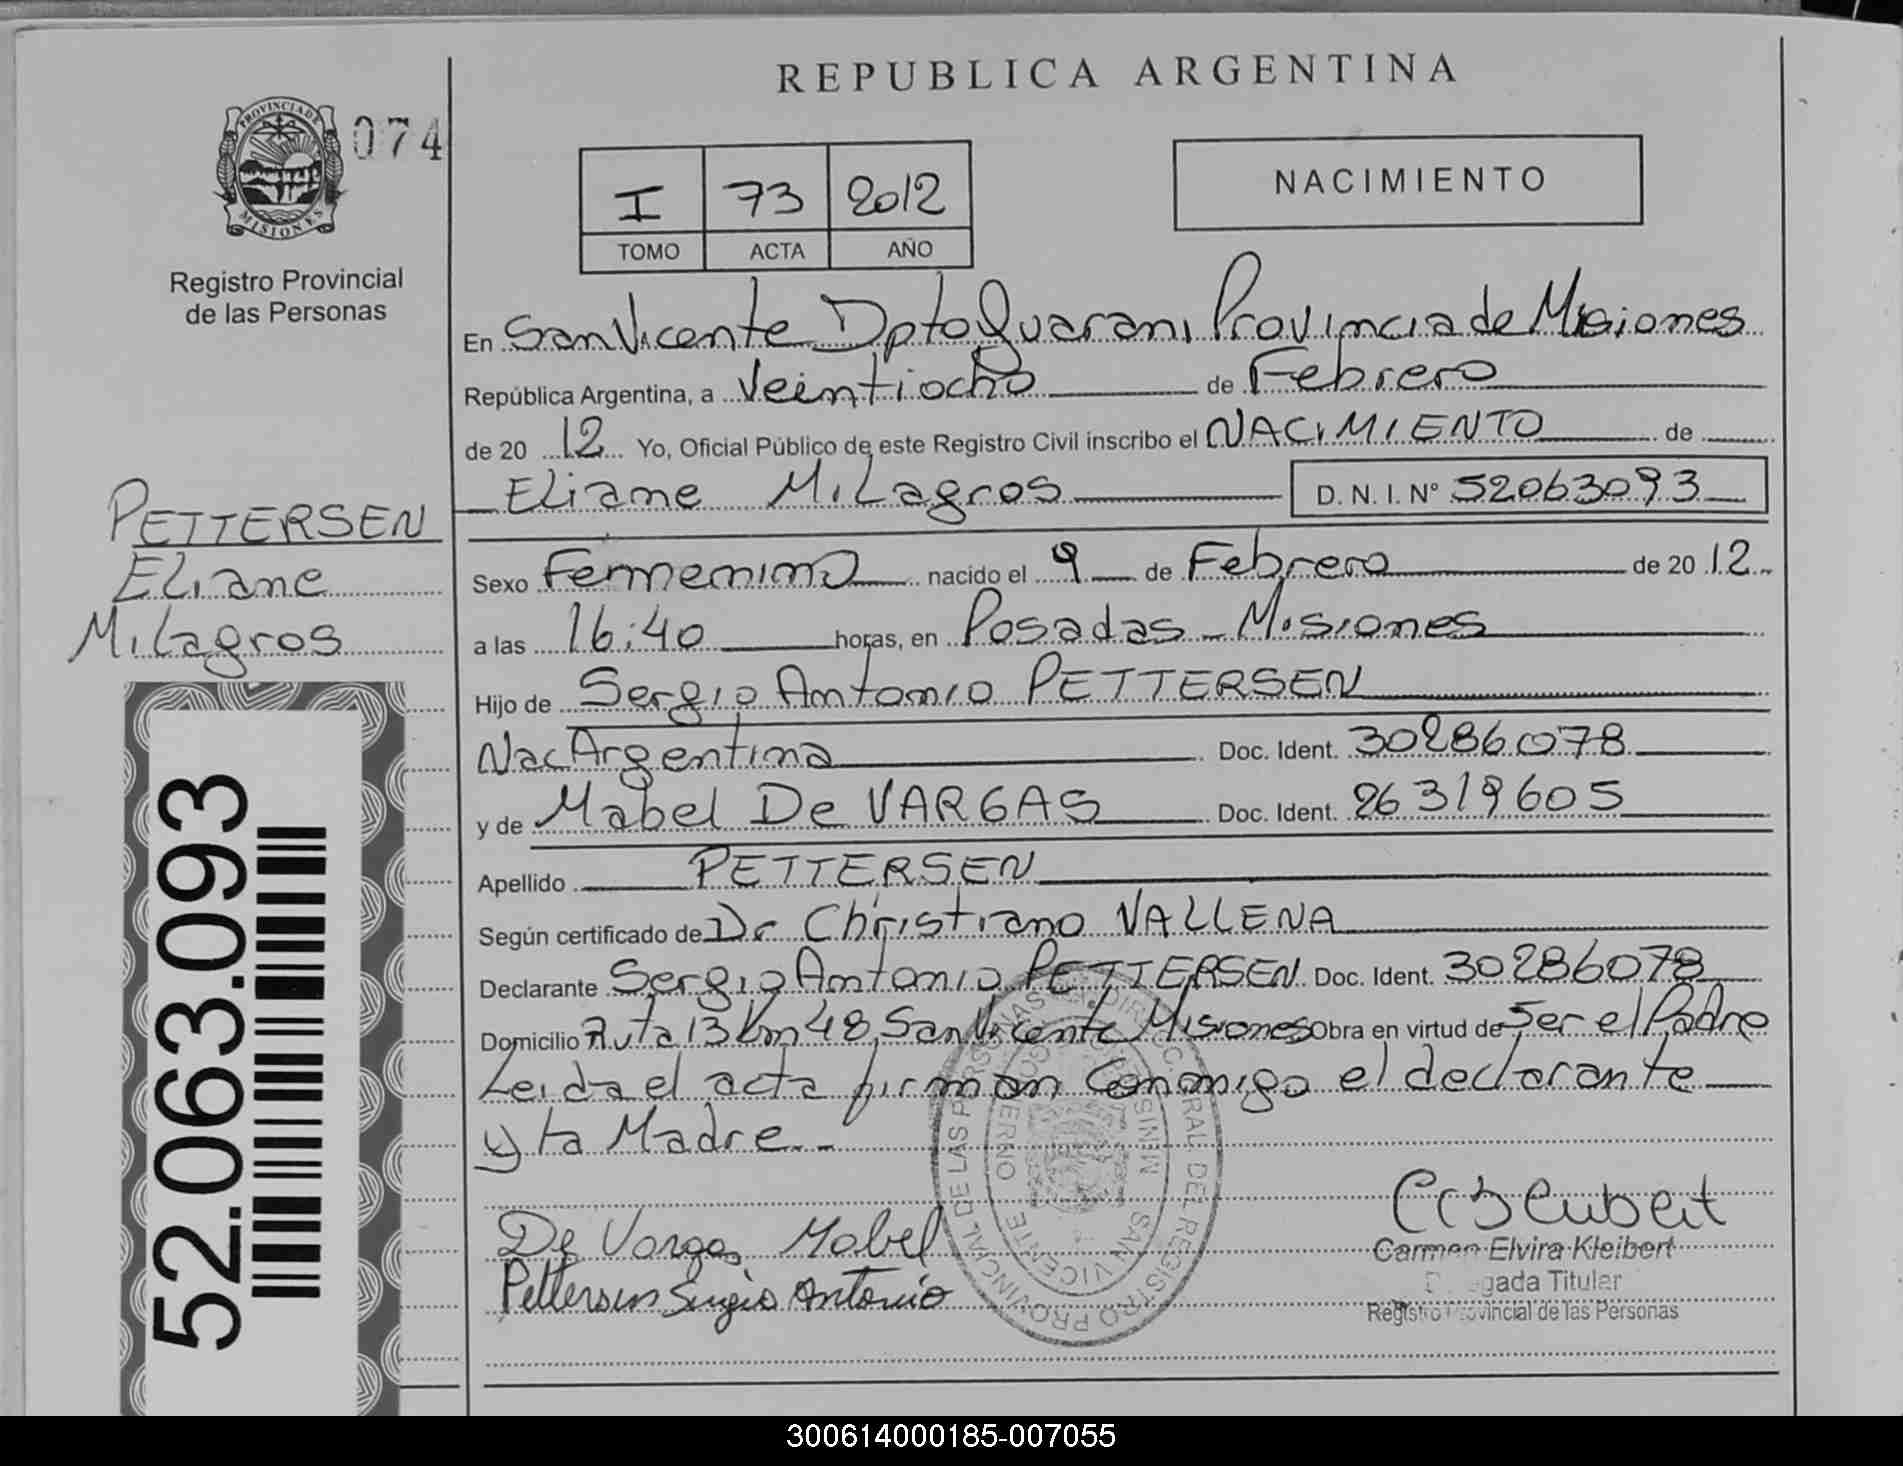 REPUBLICA ARGENTINA
PROVINCIA DE MISIONES
074
Registro Provincial
de las Personas
I 73 2012
TOMO ACTA AÑO
NACIMIENTO
En San Vicente Dpto Guarani Provincia de Misiones
República Argentina, a Veintiocho de Febrero
de 20 12 Yo, Oficial Público de este Registro Civil inscribo el NACIMIENTO de
Eliane Milagros D.N.I. Nº 52063093
PETTERSEN
Eliane
Milagros
Sexo Femenino nacido el 9 de Febrero de 20 12
a las 16:40 horas, en Posadas - Misiones
Hijo de Sergio Antonio PETTERSEN
Nac Argentina Doc. Ident. 30286078
y de Mabel De VARGAS Doc. Ident. 26319605
Apellido PETTERSEN
Según certificado de Dr Christiano VALLENA
Declarante Sergio Antonio PETTERSEN Doc. Ident. 30286078
Domicilio Ruta 13 Km 48 San Vicente Misiones Obra en virtud de Ser el Padre
Leida el acta firman Conmigo el declarante
y la Madre.-
De Vargas Mabel
Pettersen Sergio Antonio
Carmen Elvira Kleibert
Titular
Registro Provincial de las Personas
52.063.093
300614000185-007055